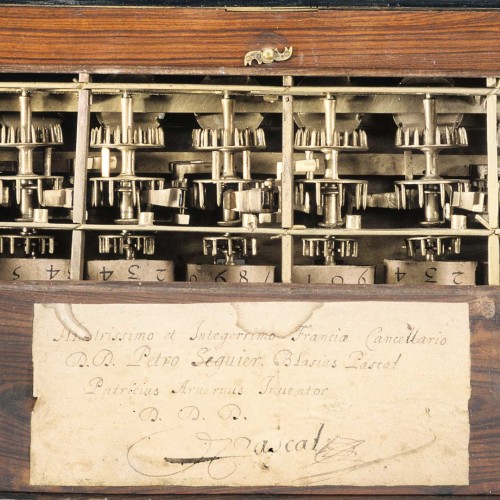 4 5 2 3 4 7 8 9 6 0 1 9 2 3 4
Illustrissimo et Integerrimo Franciæ Cancellario
D.D. Petro Seguier, Blasius Pascal
Patricius Arvernus Inventor
D. D. D.
Pascal